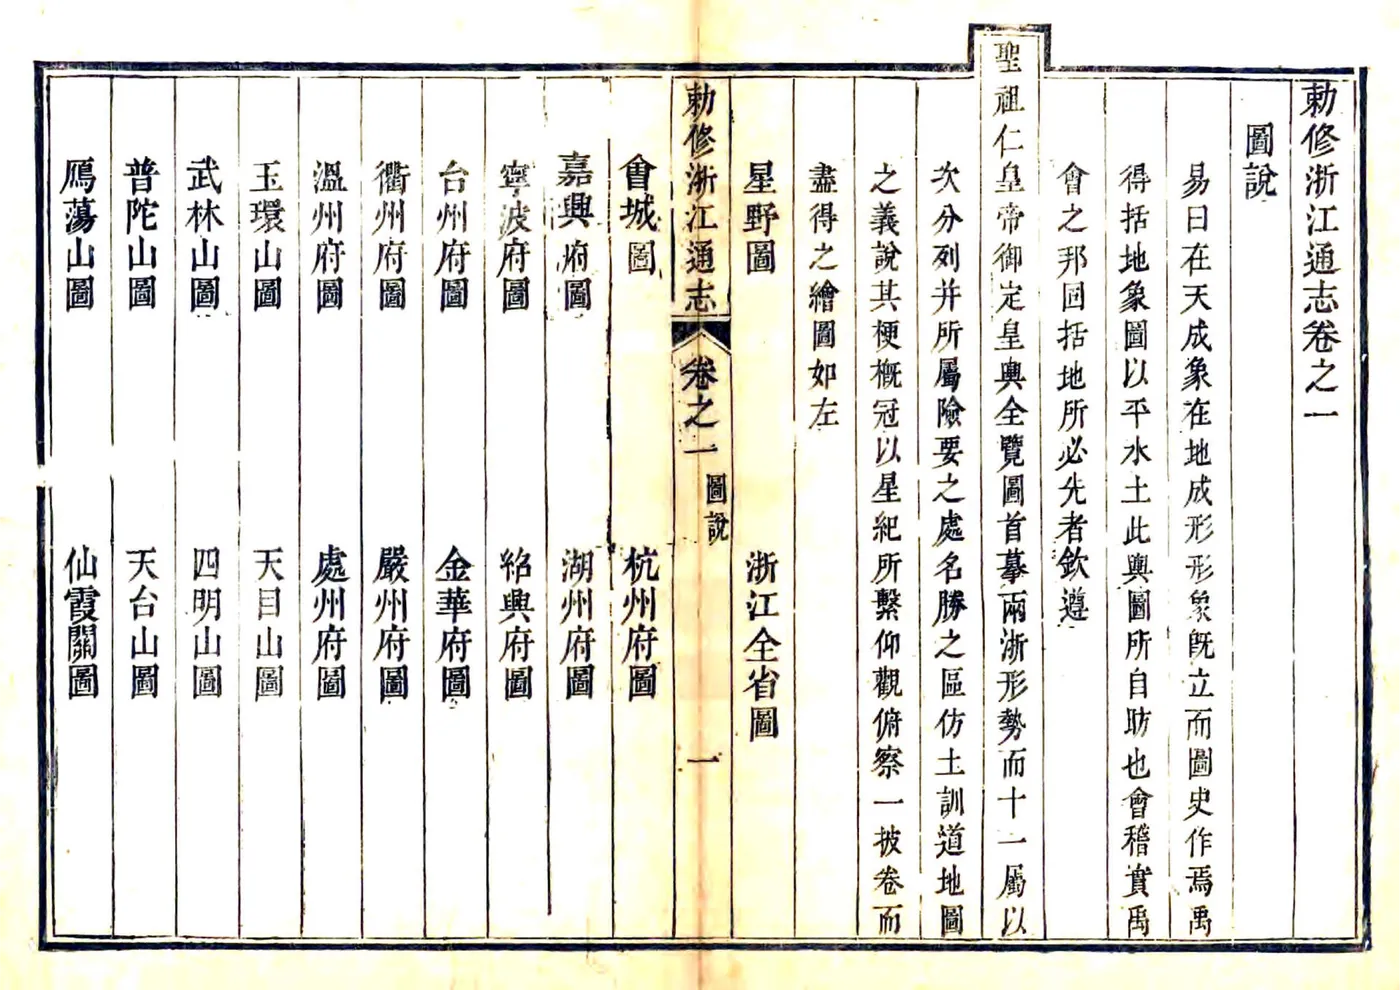 勅修浙江通志卷之一
圖說
易曰在天成象在地成形形象旣立而圖史作焉禹
得括地象圖以平水土此輿圖所自昉也會稽實禹
會之邦固括地所必先者欽遵
聖祖仁皇帝御定皇輿全覽圖首摹兩浙形勢而十一屬以
次分列并所屬險要之處名勝之區仿土訓道地圖
之義說其梗槪冠以星紀所繫仰觀俯察一披卷而
盡得之繪圖如左
星野圖 浙江全省圖
勅修浙江通志 卷之一 圖說 一
會城圖 杭州府圖
嘉興府圖 湖州府圖
寧波府圖 紹興府圖
台州府圖 金華府圖
衢州府圖 嚴州府圖
溫州府圖 處州府圖
玉環山圖 天目山圖
武林山圖 四明山圖
普陀山圖 天台山圖
鴈蕩山圖 仙霞關圖